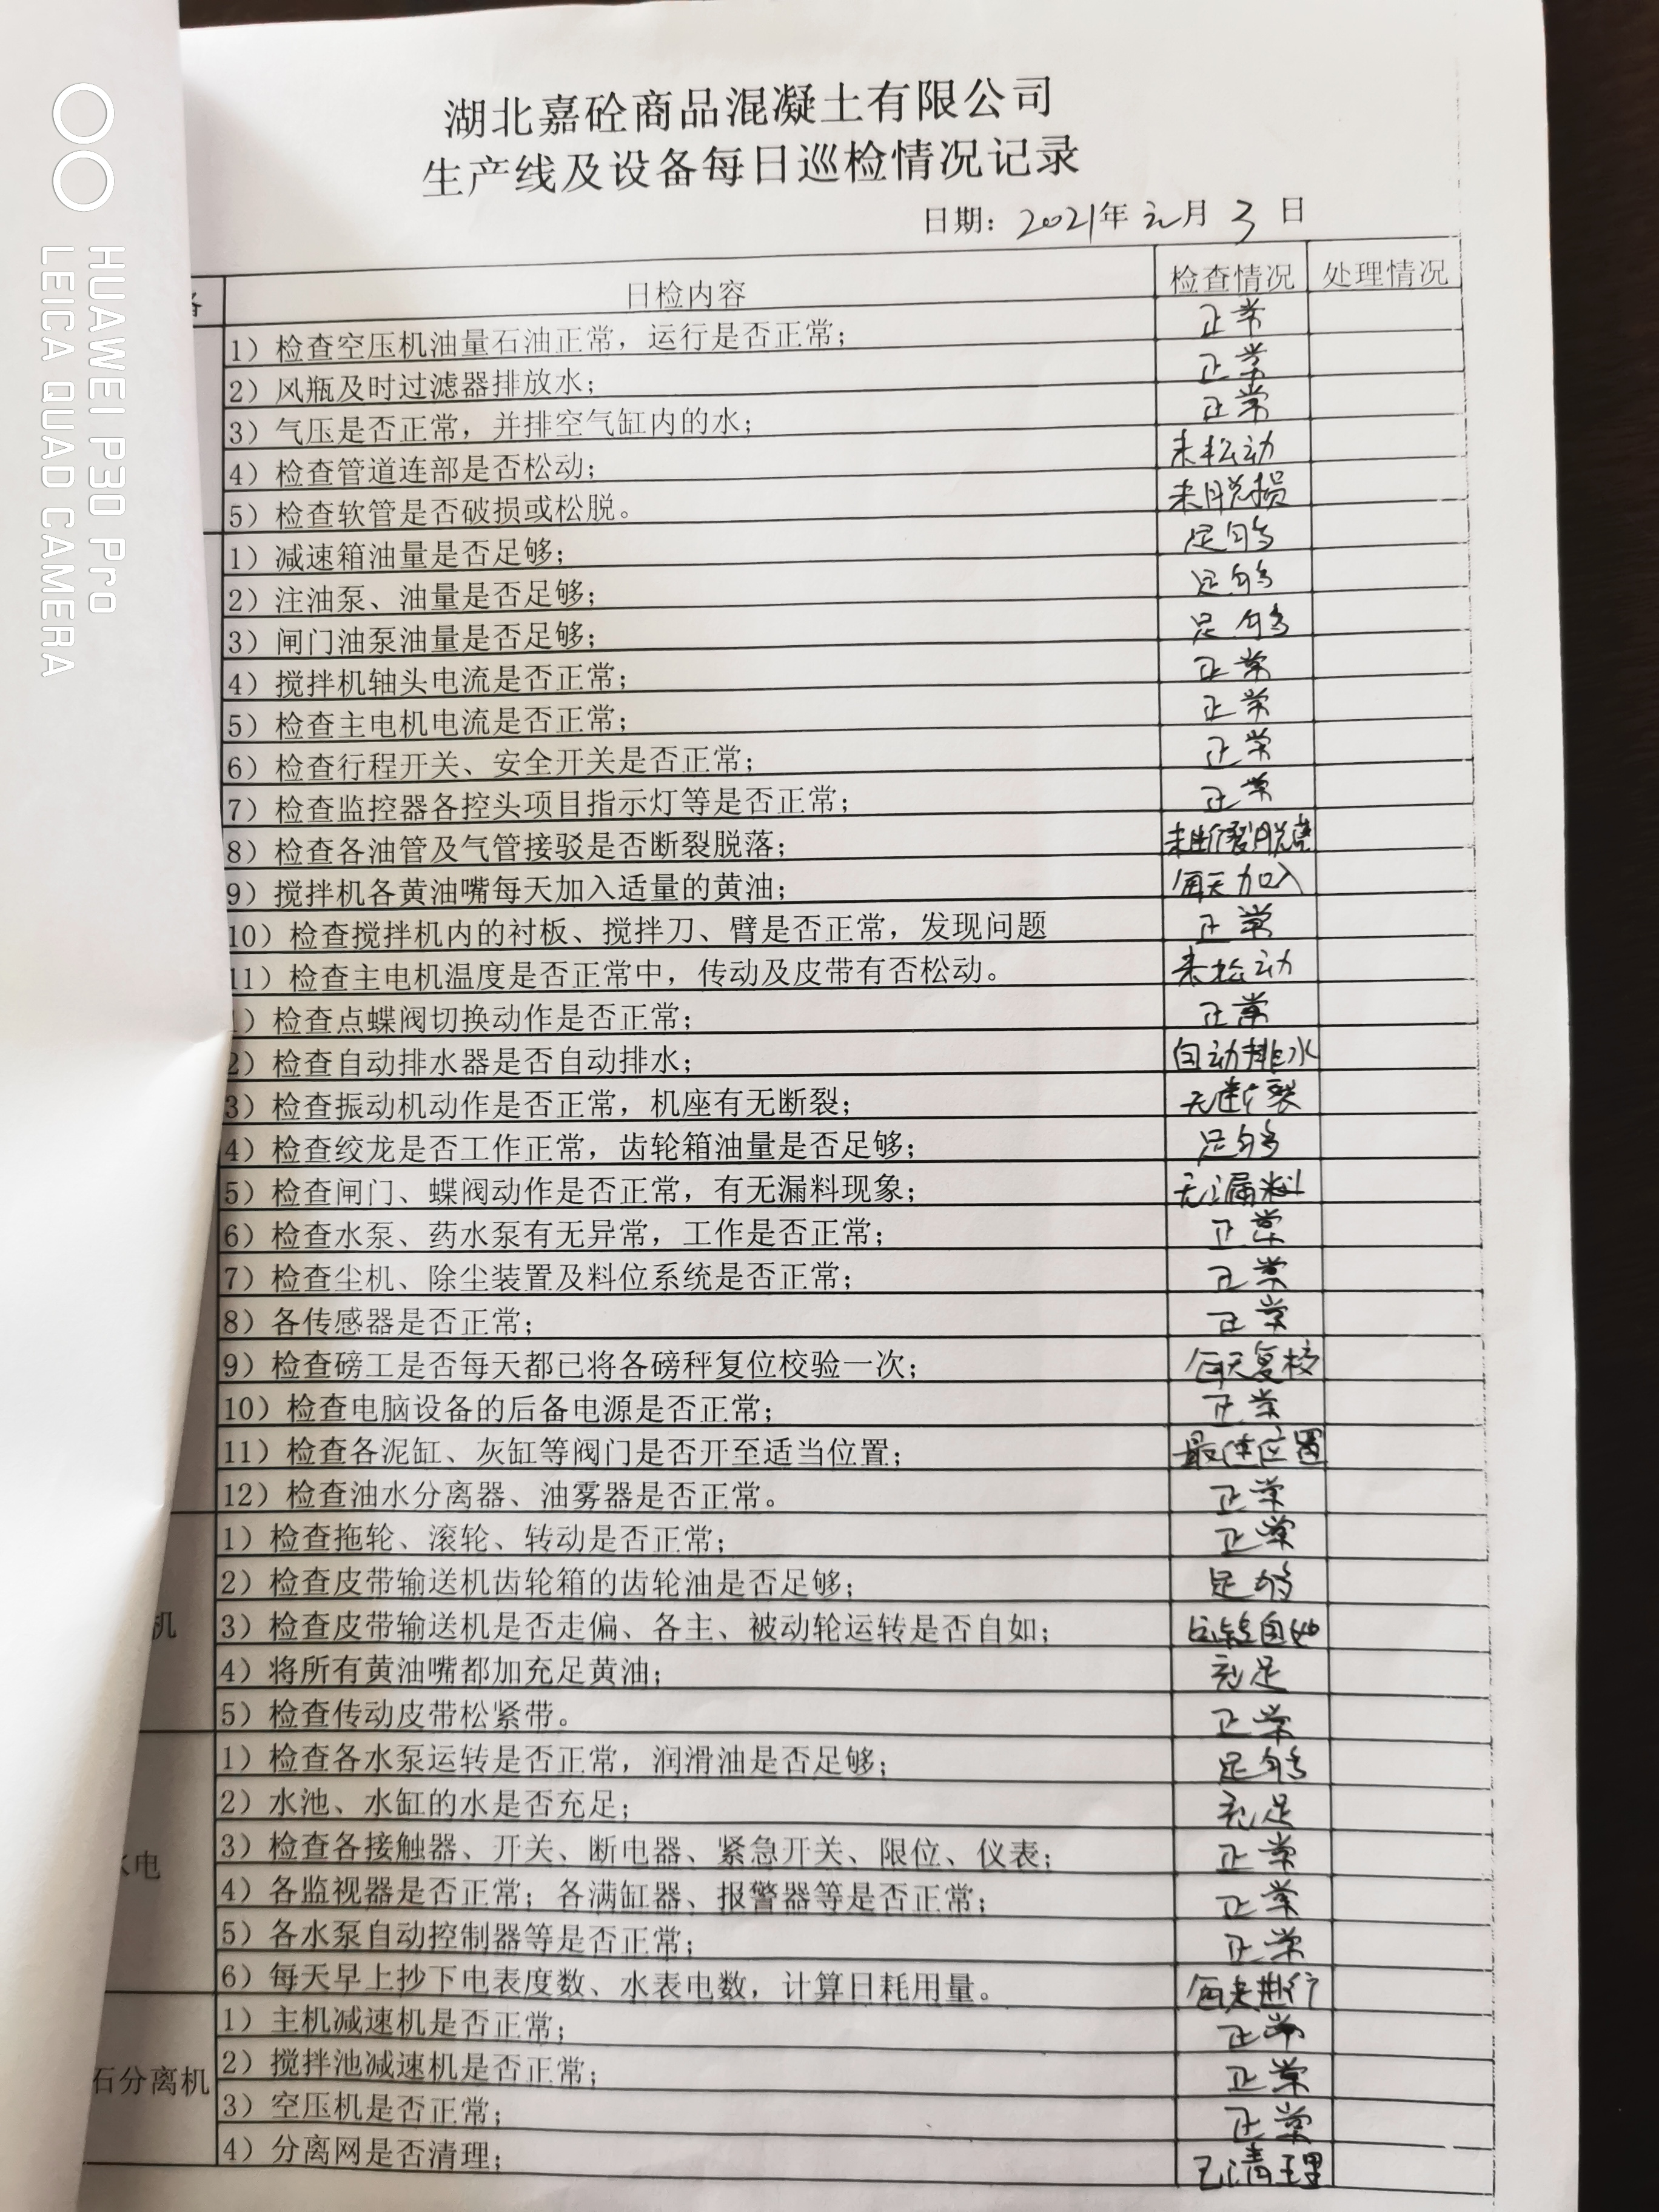 湖北嘉砼商品混凝土有限公司
生产线及设备每日巡检情况记录
日期：2021年元月3日
备 日检内容 检查情况 处理情况
1）检查空压机油量石油正常，运行是否正常； 正常
2）风瓶及时过滤器排放水； 正常
3）气压是否正常，并排空气缸内的水； 正常
4）检查管道连部是否松动； 未松动
5）检查软管是否破损或松脱。 未脱损
1）减速箱油量是否足够； 足够
2）注油泵、油量是否足够； 足够
3）闸门油泵油量是否足够； 足够
4）搅拌机轴头电流是否正常； 正常
5）检查主电机电流是否正常； 正常
6）检查行程开关、安全开关是否正常； 正常
7）检查监控器各控头项目指示灯等是否正常； 正常
8）检查各油管及气管接驳是否断裂脱落； 未断裂脱落
9）搅拌机各黄油嘴每天加入适量的黄油； 每天加入
10）检查搅拌机内的衬板、搅拌刀、臂是否正常，发现问题 正常
11）检查主电机温度是否正常中，传动及皮带有否松动。 未松动
1）检查点蝶阀切换动作是否正常； 正常
2）检查自动排水器是否自动排水； 自动排水
3）检查振动机动作是否正常，机座有无断裂； 无断裂
4）检查绞龙是否工作正常，齿轮箱油量是否足够； 足够
5）检查闸门、蝶阀动作是否正常，有无漏料现象； 无漏料
6）检查水泵、药水泵有无异常，工作是否正常； 正常
7）检查尘机、除尘装置及料位系统是否正常； 正常
8）各传感器是否正常； 正常
9）检查磅工是否每天都已将各磅秤复位校验一次； 每天复校
10）检查电脑设备的后备电源是否正常； 正常
11）检查各泥缸、灰缸等阀门是否开至适当位置； 最佳位置
12）检查油水分离器、油雾器是否正常。 正常
1）检查拖轮、滚轮、转动是否正常； 正常
2）检查皮带输送机齿轮箱的齿轮油是否足够； 足够
机 3）检查皮带输送机是否走偏、各主、被动轮运转是否自如； 自如
4）将所有黄油嘴都加充足黄油； 充足
5）检查传动皮带松紧带。 正常
1）检查各水泵运转是否正常，润滑油是否足够； 足够
2）水池、水缸的水是否充足； 充足
水电 3）检查各接触器、开关、断电器、紧急开关、限位、仪表； 正常
4）各监视器是否正常；各满缸器、报警器等是否正常； 正常
5）各水泵自动控制器等是否正常； 正常
6）每天早上抄下电表度数、水表电数，计算日耗用量。 每天进行
1）主机减速机是否正常； 正常
石分离机 2）搅拌池减速机是否正常； 正常
3）空压机是否正常； 正常
4）分离网是否清理； 已清理
HUAWEI P30 Pro
LEICA QUAD CAMERA